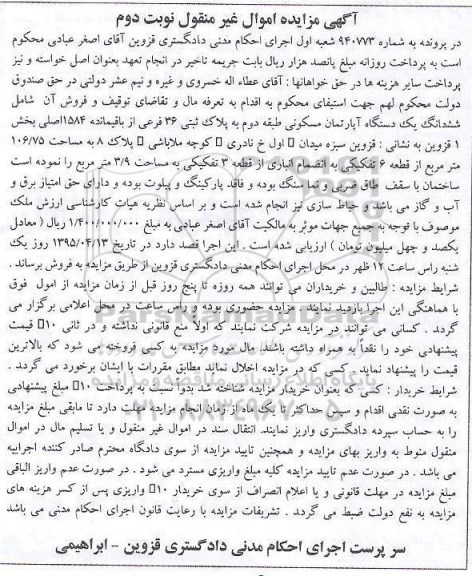 آگهی مزایده اموال غیر منقول نوبت دوم
در پرونده به شماره ۹۴۰۷۷۳ شعبه اول اجرای احکام مدنی دادگستری قزوین آقای اصغر عبادی محکوم
است به پرداخت روزانه مبلغ پانصد هزار ریال بابت جریمه تاخیر در انجام تعهد بعنوان اصل خواسته و نیز
پرداخت سایر هزینه ها در حق خواهانها : آقای عطاء اله خسروی و غیره و نیم عشر دولتی در حق صندوق
دولت محکوم لهم جهت استیفای محکوم به اقدام به تعرفه مال و تقاضای توقیف و فروش آن شامل
ششدانگ یک دستگاه آپارتمان مسکونی طبقه دوم به پلاک ثبتی ۳۶ فرعی از باقیمانده ۱۵۸۴اصلی بخش
۱ قزوین به نشانی : قزوین سبزه میدان اول خ نادری کوچه ملاباشی پلاک ۸ به مساحت ۱۰۶/۷۵
متر مربع از قطعه ۶ تفکیکی به انضمام انباری از قطعه ۳ تفکیکی به مساحت ۳/۹ متر مربع را نموده است
ساختمان با سقف طاق ضربی و نما سنگ بوده و فاقد پارکینگ و پیلوت بوده و دارای حق امتیاز برق و
آب و گاز می باشد و حیاط سازی نیز انجام شده است و بر اساس نظریه هیات کارشناسی ارزش ملک
موصوف با توجه به جمیع جهات موثر به مالکیت آقای اصغر عبادی به مبلغ ۱/۴۰۰/۰۰۰/۰۰۰ ریال ( معادل
یکصد و چهل میلیون تومان ) ارزیابی شده است . این اجرا قصد دارد در تاریخ ۱۳۹۵/۰۴/۱۳ روز یک
شنبه راس ساعت ۱۲ ظهر در محل اجرای احکام مدنی دادگستری قزوین از طریق مزایده به فروش برساند .
شرایط مزایده : طالبین و خریداران می توانند همه روزه تا پنج روز قبل از زمان مزایده از امول فوق
با هماهنگی این اجرا بازدید نمایند . مزایده حضوری بوده و راس ساعت در محل اعلامی برگزار می
گردد . کسانی می توانند در مزایده شرکت نمایند که اولاً منع قانونی نداشته و در ثانی ۱۰ قیمت
پیشنهادی خود را نقداً به همراه داشته باشند. مال مورد مزایده به کسی فروخته می شود که بالاترین
قیمت را پیشنهاد نماید . کسی که در مزایده اخلال نماید مطابق مقررات با ایشان برخورد می گردد .
شرایط خریدار : کسی که بعنوان خریدار مزایده شناخته شد بدوا نسبت به پرداخت ۱۰ مبلغ پیشنهادی
به صورت نقدی اقدام و سپس حداکثر تا یک ماه از زمان انجام مزایده مهلت دارد تا مابقی مبلغ مزایده
را به حساب سپرده دادگستری واریز نمایند. انتقال سند در اموال غیر منقول و یا تسلیم مال در اموال
منقول منوط به واریز بهای مزایده و همچنین تایید مزایده از سوی دادگاه محترم صادر کننده اجراییه
می باشد . در صورت عدم تایید مزایده کلیه مبلغ واریزی مسترد می شود . در صورت عدم واریز الباقی
مبلغ مزایده در مهلت قانونی و یا اعلام انصراف از سوی خریدار ۱۰ واریزی پس از کسر هزینه های
مزایده به نفع دولت ضبط می گردد . تشریفات مزایده با رعایت قانون اجرای احکام مدنی می باشد
سر پرست اجرای احکام مدنی دادگستری قزوین - ابراهیمی